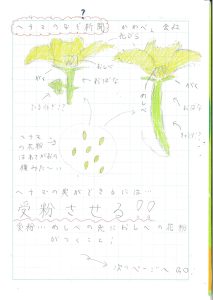 ?
ヘチマのなぞ新聞
めしべ
花びら
おしべ
がく
おばな
めしべ
がく
めばな
ヘチマ
の花粉
はあさがおの
種みたい
ヘチマの実ができるには…
受粉させる!!
受粉…めしべの先におしべの花粉
がつくこと!
次のページへGO